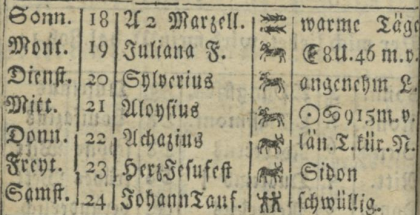 Sonn. 18 A 2 Marzell. ♓ warme Täge
Mont. 19 Juliana F. ☾ 8 U. 46 m. v.
Dienst. 20 Sylverius angenehm L.
Mitt. 21 Aloysius ☉♋ 9 15 m. v.
Donn. 22 Achazius län. T. kür. N.
Freyt. 23 Herz Jesufest Sidon
Samst. 24 Johann Tauf. schwüllig.